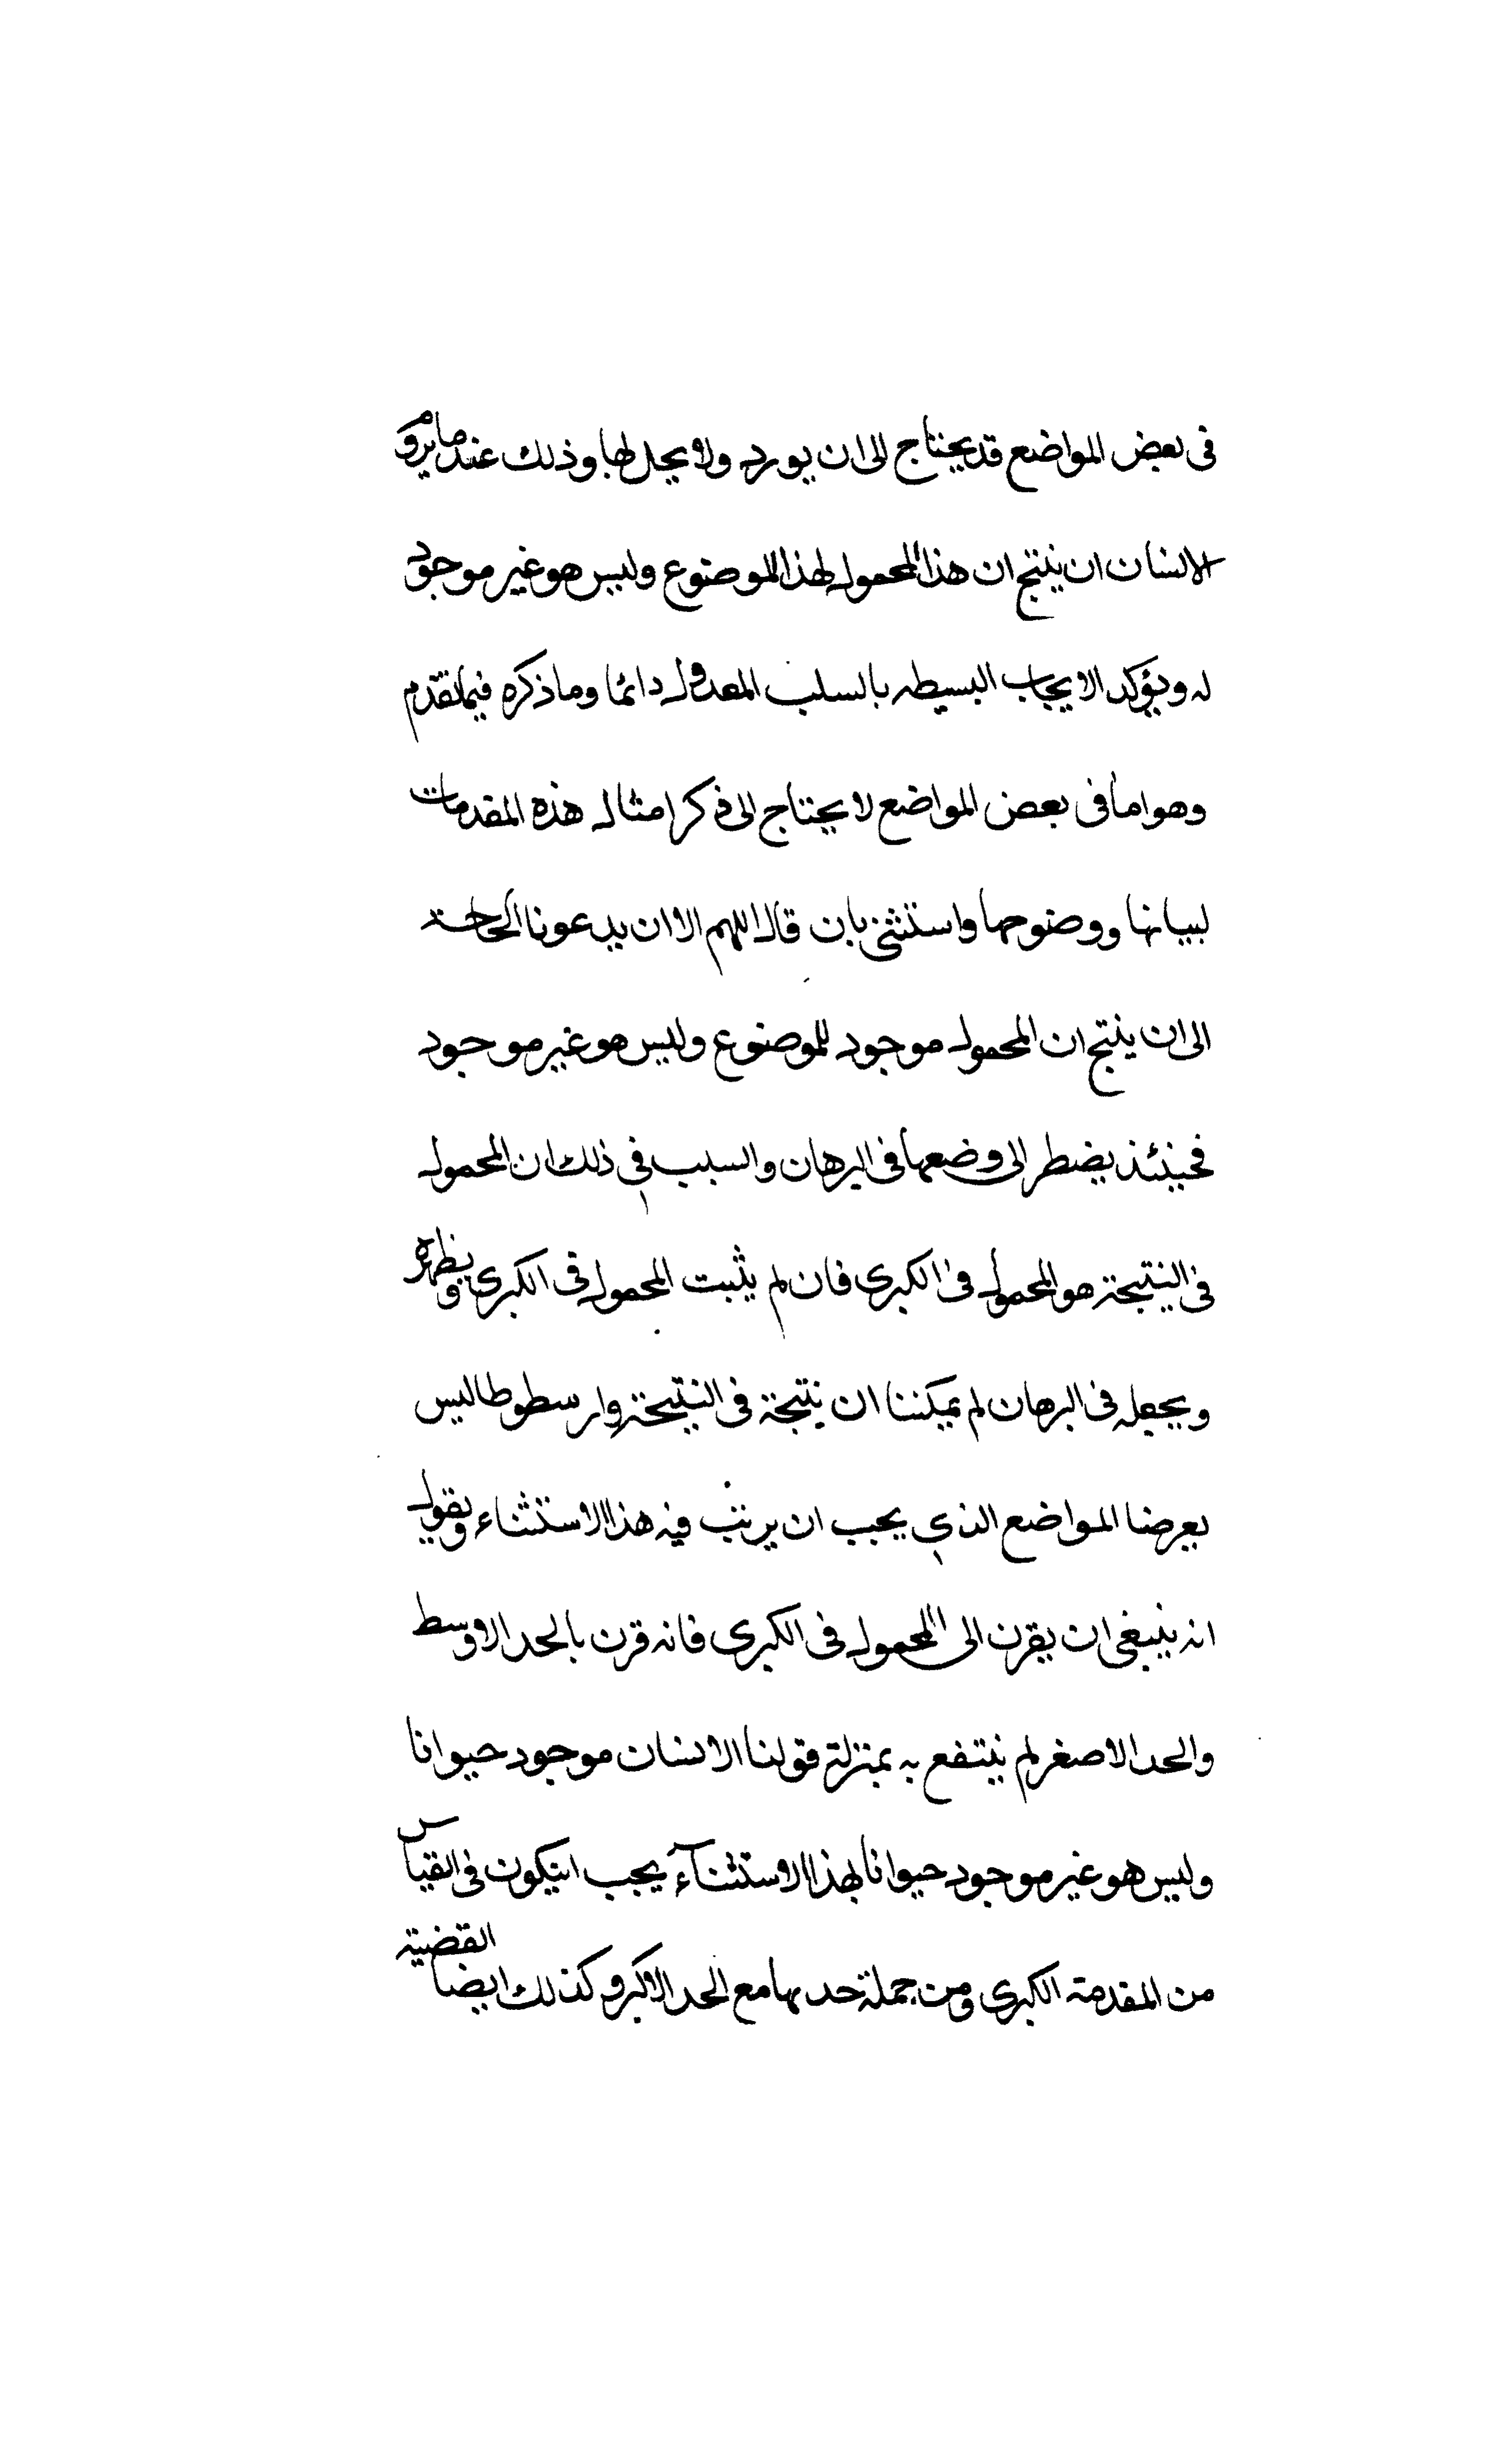 فى بعض المواضع قد يحتاج الى ان يورد ولا يحل لها وذلك عند ما يروم
الانسان ان ينتج ان هذا المحمول لهذا الموضوع وليس هو غير موجود
له ويؤكد الايجاب البسيطه بالسلب المعدول دائما وما ذكره فيما تقدم
وهو اما فى بعض المواضع لا يحتاج الى ذكر امثال هذه المقدمات
لبيانها ووضوحها واستثنى بان قال اللهم الا ان يدعونا الحاجة
الى ان ينتج ان المحمول موجود للموضوع وليس هو غير موجود
فحينئذ يضطر الى وضعها فى البرهان والسبب فى ذلك ان المحمول
فى النتيجة هو المحمول فى الكبرى فان لم يثبت المحمول فى الكبرى ويظهره
ويجعله فى البرهان لم يمكننا ان ينتجة فى النتيجة وارسطوطاليس
يعرضنا المواضع الذي يجب ان يرتب فيه هذا الاستثناء ويقول
انه ينبغى ان يقرن الى المحمول فى الكبرى فانه قرن بالحد الاوسط
والحد الاصغر لم ينتفع به بمنزلة قولنا الانسان موجود حيوانا
وليس هو غير موجود حيوانا لهذا الاستثنآء يجب ان يكون فى القياس
من المقدمة الكبرى ومن جملة حدها مع الحد الاكبر وكذلك ايضا القضية